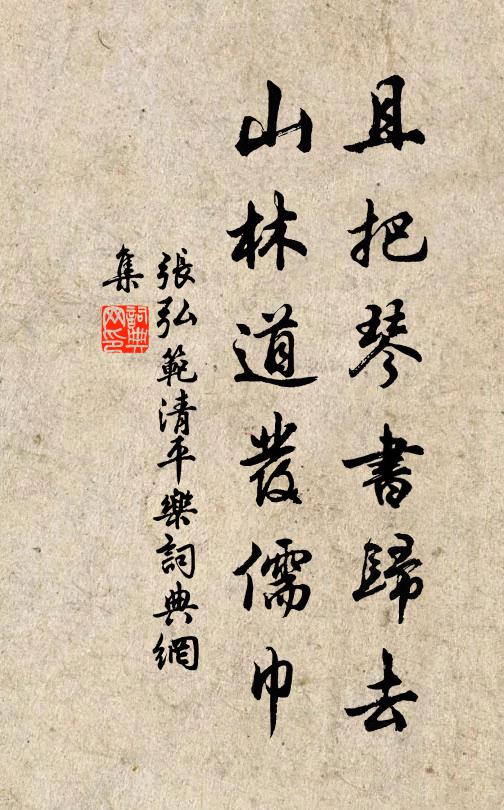 且把琴書歸去
山林道發儒巾
張弘範清平樂詞典網
集
詞典
網印